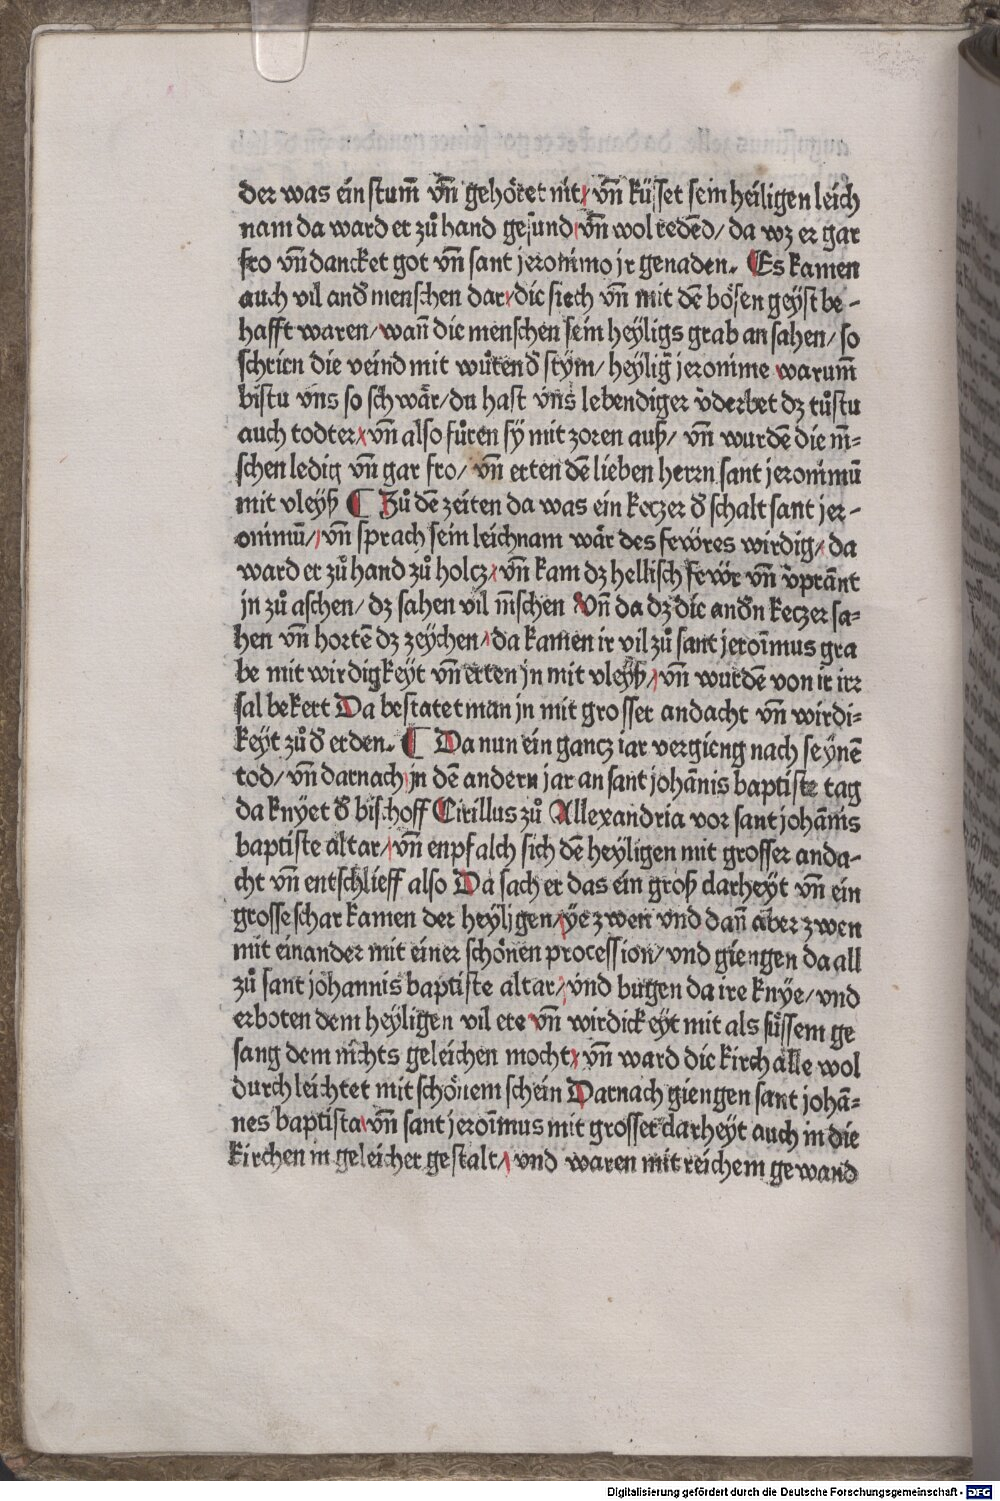 der was ein stum̄ vn̄ gehöret nit/ vn̄ küsset sein heiligen leich
nam da ward er zů hand gesund/ vn̄ wol redēd/ da wz er gar
fro vn̄ dancket got vn̄ sant jeronimo jr genaden. Es kamen
auch vil and̄ menschen dar/ die siech vn̄ mit dē bösen geyst be-
hafft waren/ wan̄ die menschen sein heyligs grab an sahen/ so
schrien die veind mit wůtend̄ stym/ heyliḡ jeronime warum̄
bistu vns so schwär/ du hast vns lebendiger v̄derbet dz tůstu
auch todter/ vn̄ also fůren sy mit zoren auß/ vn̄ wurdē die m̄-
schen ledig vn̄ gar fro/ vn̄ erten dē lieben herrn sant jeronimū
mit vleyß ¶ Zů dē zeiten da was ein keczer d̄ schalt sant jer-
onimū/ vn̄ sprach sein leichnam wär des fewres wirdig/ da
ward er zů hand zů holcz/ vn̄ kam dz hellisch fewr vn̄ v̄prānt
jn zů aschen/ dz sahen vil m̄schen Vn̄ da dz die and̄n keczer sa-
hen vn̄ hortē dz zeychen/ da kamen ir vil zů sant jeroīmus gra
be mit wirdigkeyt vn̄ erten jn mit vleyß/ vn̄ wurdē von ir irr
sal bekert Da bestatet man jn mit grosser andacht vn̄ wirdi-
keyt zů d̄ erden. ¶ Da nun ein gancz iar vergieng nach seynē
tod/ vn̄ darnach jn dē andern jar an sant johānis baptiste tag
da knyet d̄ bischoff Cirillus zů Allexandria vor sant johānis
baptiste altar/ vn̄ enpfalch sich dē heyligen mit grosser anda-
cht vn̄ entschlieff also Da sach er das ein groß clarheyt vn̄ ein
grosse schar kamen der heyligen/ ye zwen vnd dan̄ aber zwen
mit einander mit einer schönen procession/ vnd giengen da all
zů sant johannis baptiste altar/ vnd bugen da ire knye/ vnd
erboten dem heyligen vil ere vn̄ wirdickeyt mit als süssem ge
sang dem nichts geleichen mocht/ vn̄ ward die kirch alle wol
durchleichtet mit schönem schein Darnach giengen sant johā-
nes baptista/ vn̄ sant jeroīmus mit grosser clarheyt auch in die
kirchen in geleicher gestalt/ vnd waren mit reichem gewand
Digitalisierung gefördert durch die Deutsche Forschungsgemeinschaft - DFG